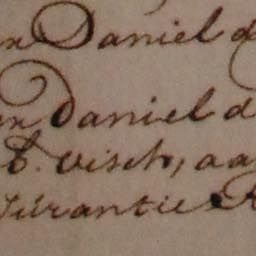 en Daniel d
en daniel d
t. visch, aa
Jurantie